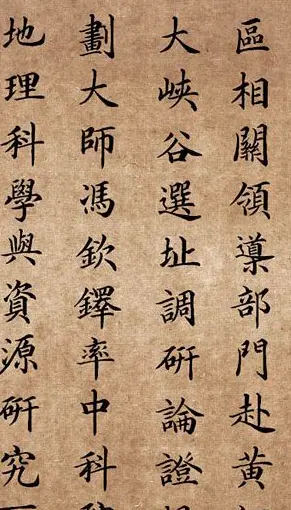 區相關領導部門赴黃
大峽谷選址調研論證
劃大師馮欽鐸率中科
地理科學與資源研究